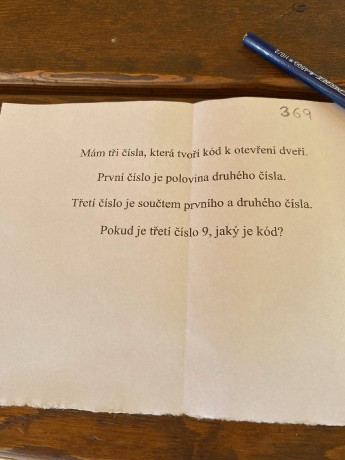 369
Mám tři čísla, která tvoří kód k otevření dveří.
První číslo je polovina druhého čísla.
Třetí číslo je součtem prvního a druhého čísla.
Pokud je třetí číslo 9, jaký je kód?